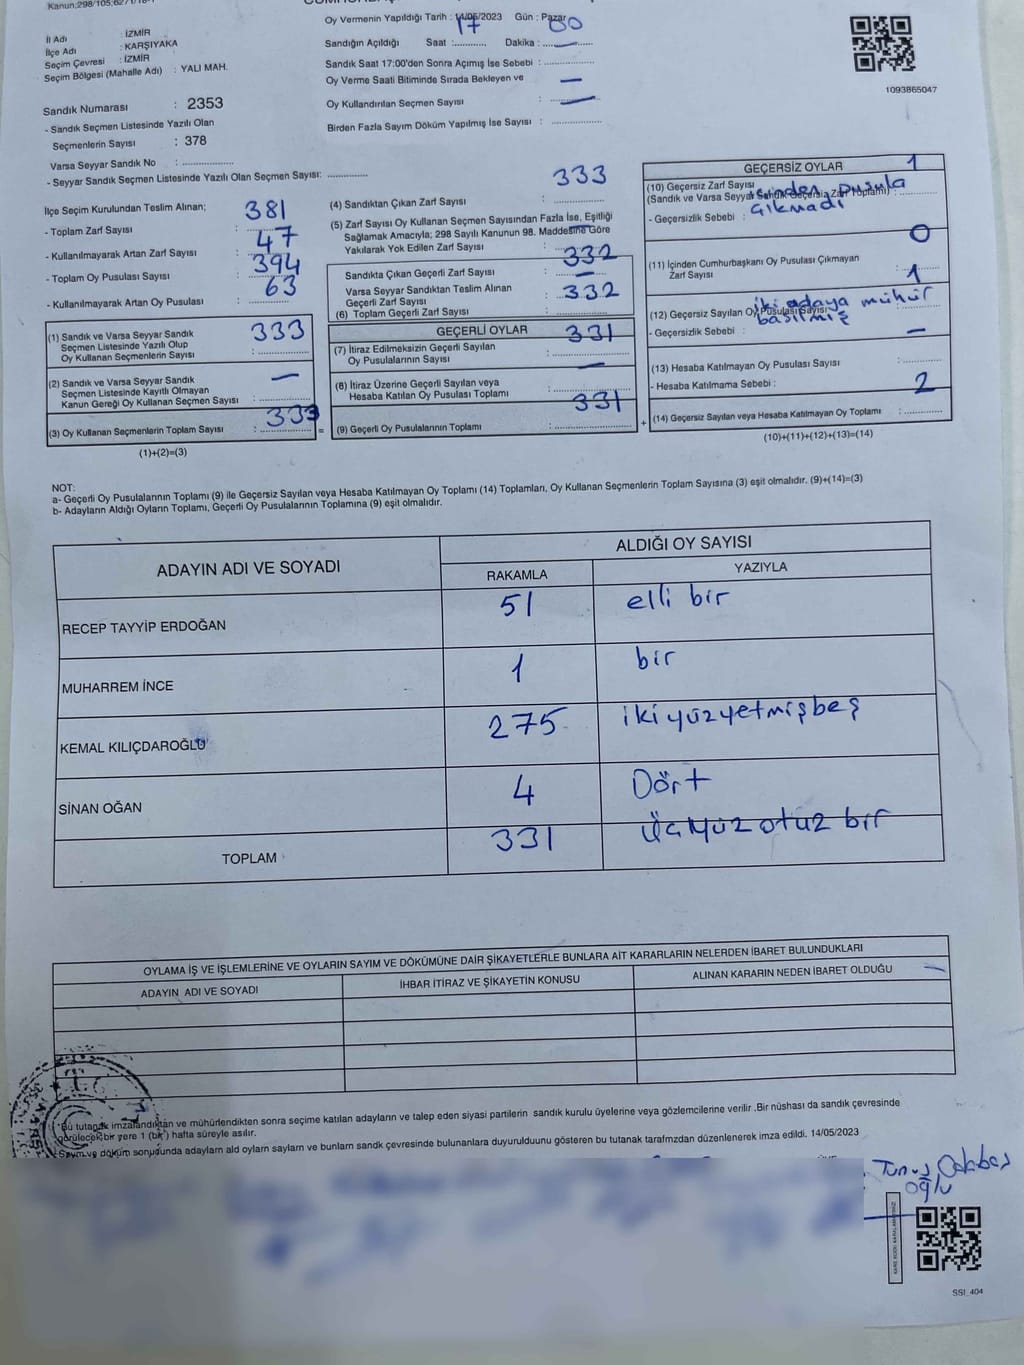 Kanun:298/105,627/18-1
Oy Vermenin Yapıldığı Tarih : 14/05/2023 Gün : Pazar
17 00
Sandığın Açıldığı Saat : Dakika :
Sandık Saat 17:00'den Sonra Açımış İse Sebebi :
Oy Verme Saati Bitiminde Sırada Bekleyen ve
Oy Kullandırılan Seçmen Sayısı : —
Birden Fazla Sayım Döküm Yapılmış İse Sayısı :
1093865047
İl Adı : İZMİR
İlçe Adı : KARŞIYAKA
Seçim Çevresi : İZMİR
Seçim Bölgesi (Mahalle Adı) : YALI MAH.
Sandık Numarası : 2353
- Sandık Seçmen Listesinde Yazılı Olan
Seçmenlerin Sayısı : 378
Varsa Seyyar Sandık No :
- Seyyar Sandık Seçmen Listesinde Yazılı Olan Seçmen Sayısı:
İlçe Seçim Kurulundan Teslim Alınan;
- Toplam Zarf Sayısı : 381
- Kullanılmayarak Artan Zarf Sayısı : 47
- Toplam Oy Pusulası Sayısı : 394
- Kullanılmayarak Artan Oy Pusulası : 63
(1) Sandık ve Varsa Seyyar Sandık
Seçmen Listesinde Yazılı Olup
Oy Kullanan Seçmenlerin Sayısı : 333
(2) Sandık ve Varsa Seyyar Sandık
Seçmen Listesinde Kayıtlı Olmayan
Kanun Gereği Oy Kullanan Seçmen Sayısı : —
(3) Oy Kullanan Seçmenlerin Toplam Sayısı : 333
(1)+(2)=(3)
(4) Sandıktan Çıkan Zarf Sayısı : 333
(5) Zarf Sayısı Oy Kullanan Seçmen Sayısından Fazla İse, Eşitliği
Sağlamak Amacıyla; 298 Sayılı Kanunun 98. Maddesine Göre
Yakılarak Yok Edilen Zarf Sayısı : —
Sandıkta Çıkan Geçerli Zarf Sayısı : 332
Varsa Seyyar Sandıktan Teslim Alınan
Geçerli Zarf Sayısı : —
(6) Toplam Geçerli Zarf Sayısı : 332
GEÇERLİ OYLAR
(7) İtiraz Edilmeksizin Geçerli Sayılan
Oy Pusulalarının Sayısı : 331
(8) İtiraz Üzerine Geçerli Sayılan veya
Hesaba Katılan Oy Pusulası Toplamı : —
(9) Geçerli Oy Pusulalarının Toplamı : 331
GEÇERSİZ OYLAR
(10) Geçersiz Zarf Sayısı 1
(Sandık ve Varsa Seyyar Sandık Geçersiz Zarf Toplamı) :
- Geçersizlik Sebebi : içinden pusula
çıkmadı
(11) İçinden Cumhurbaşkanı Oy Pusulası Çıkmayan
Zarf Sayısı 0
(12) Geçersiz Sayılan Oy Pusulası Sayısı 1
- Geçersizlik Sebebi : iki adaya mühür
basılmış
(13) Hesaba Katılmayan Oy Pusulası Sayısı : —
- Hesaba Katılmama Sebebi :
(14) Geçersiz Sayılan veya Hesaba Katılmayan Oy Toplamı : 2
(10)+(11)+(12)+(13)=(14)
NOT:
a- Geçerli Oy Pusulalarının Toplamı (9) ile Geçersiz Sayılan veya Hesaba Katılmayan Oy Toplamı (14) Toplamları, Oy Kullanan Seçmenlerin Toplam Sayısına (3) eşit olmalıdır. (9)+(14)=(3)
b- Adayların Aldığı Oyların Toplamı, Geçerli Oy Pusulalarının Toplamına (9) eşit olmalıdır.
ADAYIN ADI VE SOYADI ALDIĞI OY SAYISI
RAKAMLA YAZIYLA
RECEP TAYYİP ERDOĞAN 51 elli bir
MUHARREM İNCE 1 bir
KEMAL KILIÇDAROĞLU 275 ikiyüzyetmişbeş
SİNAN OĞAN 4 Dört
TOPLAM 331 üçyüz otuz bir
OYLAMA İŞ VE İŞLEMLERİNE VE OYLARIN SAYIM VE DÖKÜMÜNE DAİR ŞİKAYETLERLE BUNLARA AİT KARARLARIN NELERDEN İBARET BULUNDUKLARI
ADAYIN ADI VE SOYADI İHBAR İTİRAZ VE ŞİKAYETİN KONUSU ALINAN KARARIN NEDEN İBARET OLDUĞU
Bu tutanak imzalandıktan ve mühürlendikten sonra seçime katılan adayların ve talep eden siyasi partilerin sandık kurulu üyelerine veya gözlemcilerine verilir .Bir nüshası da sandık çevresinde
görülecek bir yere 1 (bir ) hafta süreyle asılır.
Sayım ve döküm sonucunda adayların ald oyların sayların ve bunlam sandk çevresinde bulunanlara duyurulduunu gösteren bu tutanak tarafmzdan düzenlenerek imza edildi. 14/05/2023
SSI_404